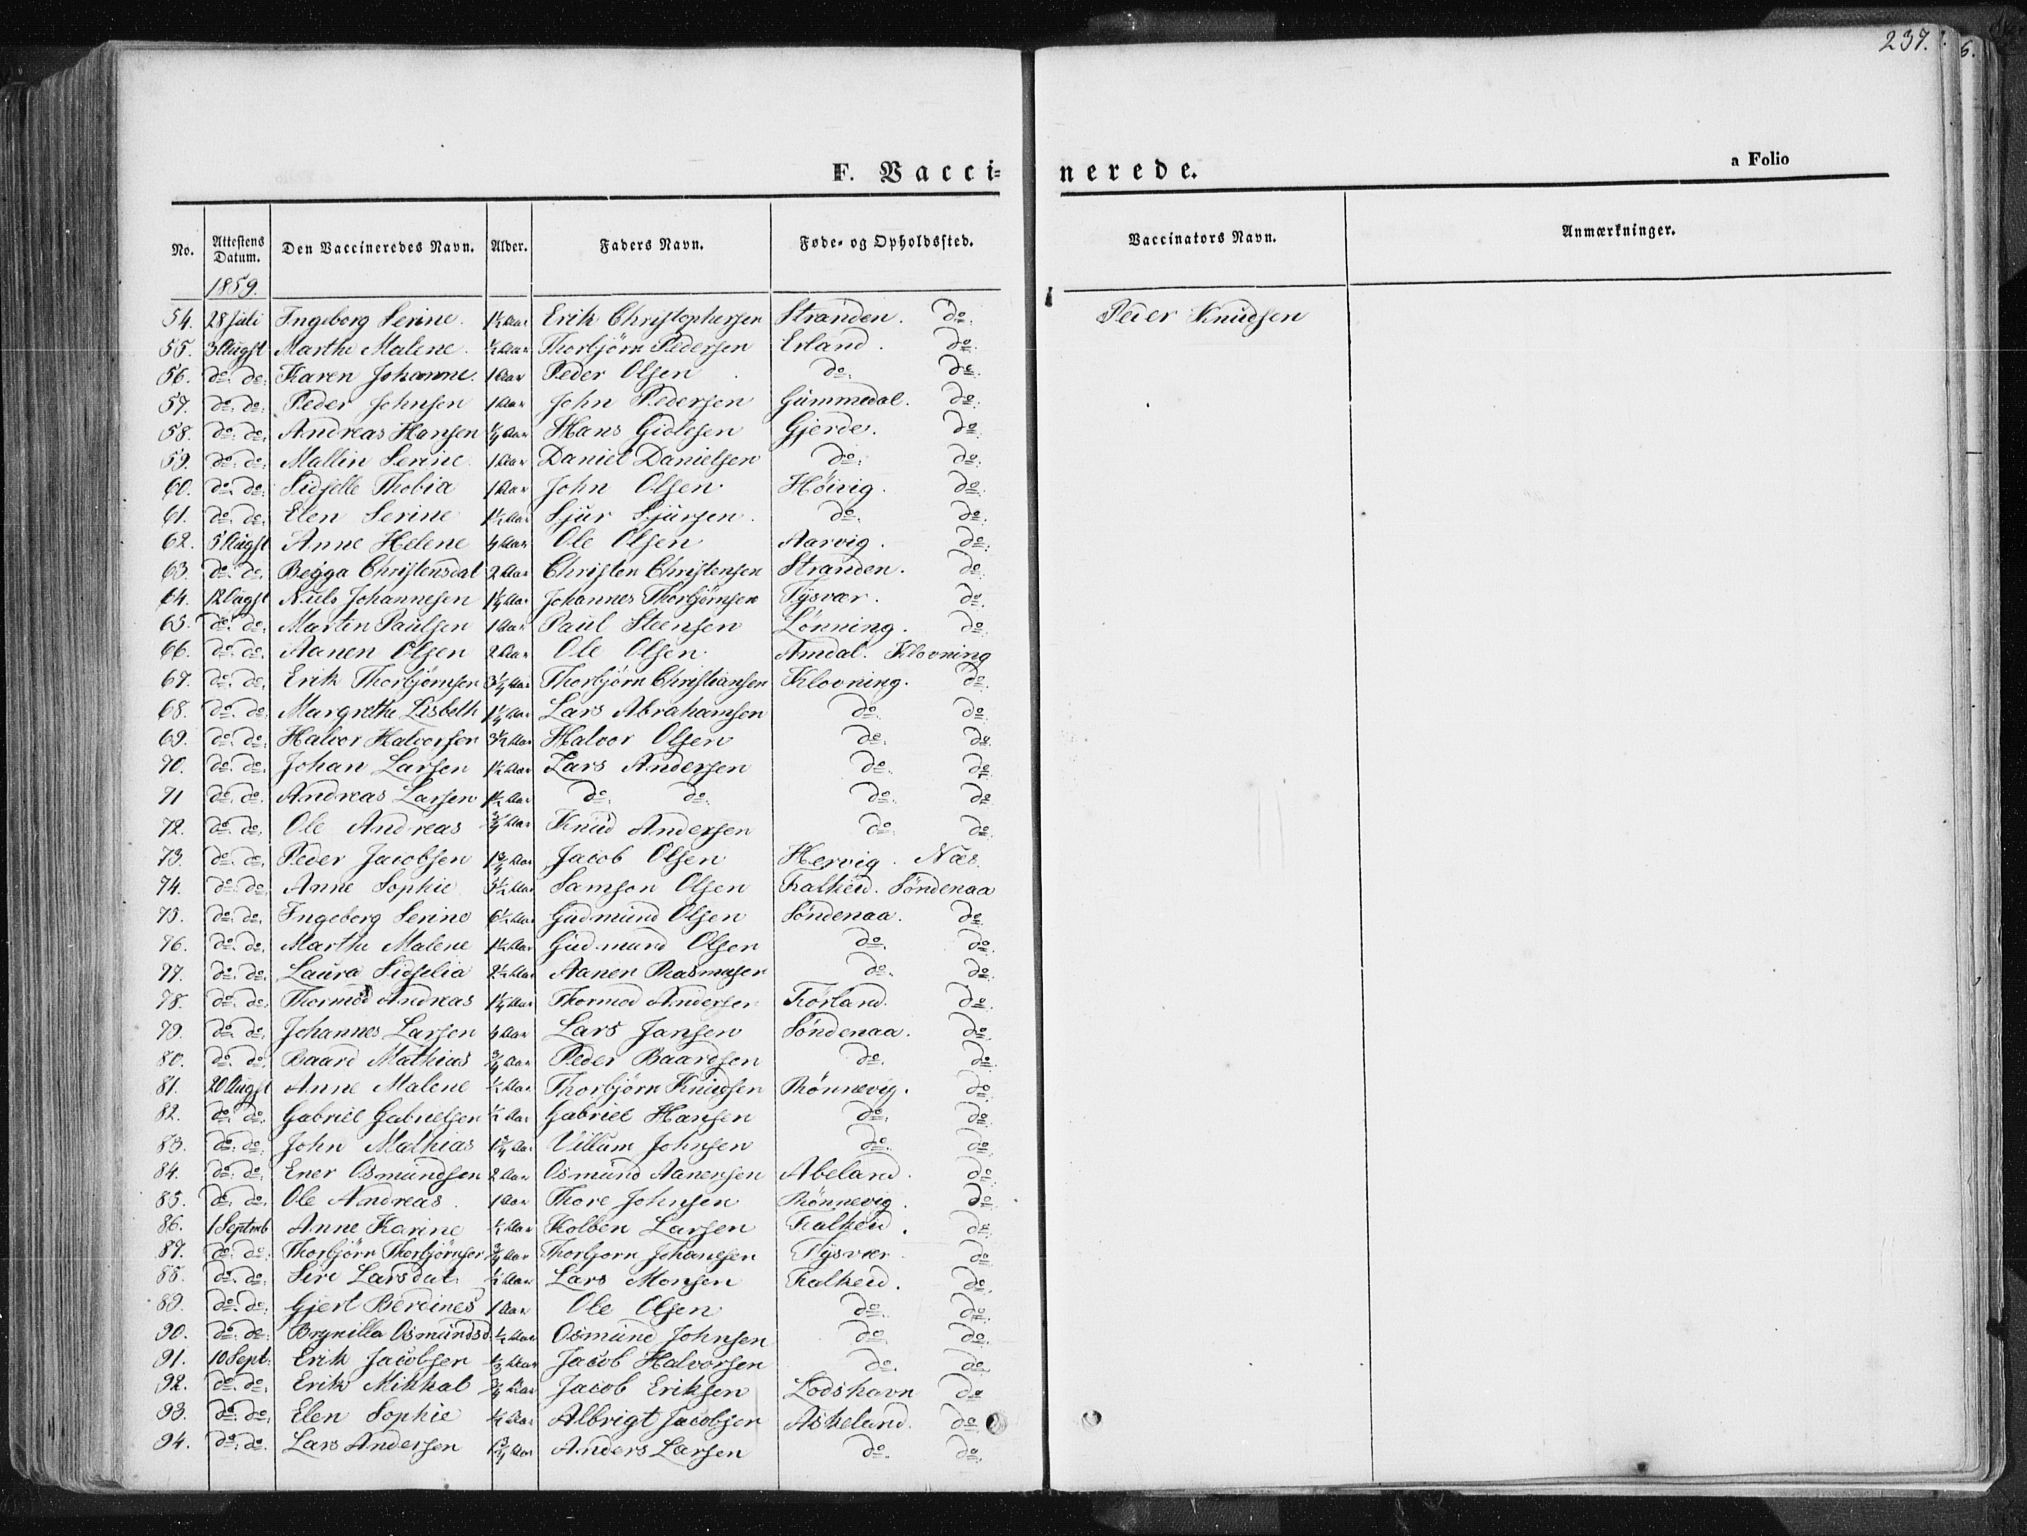 237.
F. Vaccinerede.
a Folio
No. Attestens Datum. Den Vaccineredes Navn. Alder. Faders Navn. Føde- og Opholdssted. Vaccinators Navn. Anmærkninger.
1859.
54. 28 Juli Ingeborg Serine. 1½ Aar Erik Christophersen Stranden. do. Peder Knudsen
55. 3 Augst Marthe Malene. ½ Aar Thorbjørn Pedersen Erland. do.
56. do. do. Karen Johanne. 1 Aar Peder Olsen do. do.
57. do. do. Peder Johnsen 1 Aar John Pedersen Gummedal. do.
58. do. do. Andreas Hansen ¼ Aar Hans Gidlesen Gjerde. do.
59. do. do. Mallin Serine. 1 Aar Daniel Danielsen do. do.
60. do. do. Sidselle Thobia 1 Aar John Olsen Høivig. do.
61. do. do. Elen Serine 1½ Aar Sjur Sjursen. do. do.
62. 5 Augst Anne Helene Aar Ole Olsen Aarvig. do.
63. do. do. Begga Christensdat 2 Aar Christen Christensen Stranden. do.
64. 12 Augst Niels Johannesen 1¼ Aar Johannes Thorbjørnsen Tysvær. do.
65. do. do. Martin Paulsen 1 Aar Paul Steensen Lønning. do.
66. do. do. Aanen Olsen 2 Aar Ole Olsen. Amdal. Klovning
67. do. do. Erik Thorbjørnsen 3¼ Aar Thorbjørn Christiansen Klovning. do.
68. do. do. Margrethe Lisbeth 1¼ Aar Lars Abrahamsen do. do.
69. do. do. Halvor Halvorsen 3½ Aar Halvor Olsen do. do.
70. do. do. Johan Larsen 1½ Aar Lars Andersen do. do.
71 do. do. Andreas Larsen 1½ Aar do. do. do. do.
72. do. do. Ole Andreas ¾ Aar Knud Andersen do. do.
73. do. do. Peder Jacobsen 1¾ Aar Jacob Olsen Hervig. Næs.
74. do. do. Anne Sophie 5½ Aar Samson Olsen Falkeid. Søndenaa
75. do. do. Ingeborg Serine 6½ Aar Gudmund Olsen Søndenaa. do.
76. do. do. Marthe Malene 1½ Aar Gudmund Olsen do. do.
77. do. do. Laura Sidselia 2½ Aar Aanen Rasmusen do. do.
78. do. do. Thormod Andreas 1¼ Aar Thormod Andersen Førland. do.
79. do. do. Johannes Larsen Aar Lars Jansen Søndenaa. do.
80. do. do. Baard Mathias ¾ Aar Peder Baardsen do. do.
81. 20 Augst Anne Malene ½ Aar Thorbjørn Knudsen Rønnevig. do.
82. do. do. Gabriel Gabrielsen ½ Aar Gabriel Hansen do. do.
83. do. do. John Mathias 1¾ Aar Villum Johnsen do. do.
84. do. do. Ener Osmundsen 2 Aar Osmund Aanensen Abeland. do.
85. do. do. Ole Andreas. 1 Aar Thore Johnsen Rønnevig. do.
86. 1 Septmb Anne Karine ½ Aar Kolben Larsen Falkeid. do.
87. do. do. Thorbjørn Thorbjørnsen ¾ Aar Thorbjørn Johanesen Tysvær do.
88. do. do. Siri Larsdat. ½ Aar Lars Monsen Falkeid. do.
89. do. do. Gjert Berdines 1 Aar Ole Olsen do. do.
90. do. do. Brynilla Osmundsd. ½ Aar Osmund Johnsen do. do.
91. 10 Sept. Erik Jacobsen Aar Jacob Halvorsen do. do.
92. do. do. Erik Mikkal ¾ Aar Jacob Eriksen Lodshavn do
93. do. do. Elen Sophie Aar Albrigt Jacobsen Askeland. do.
94. do. do. Lars Andersen 1¾ Aar Anders Larsen do. do.